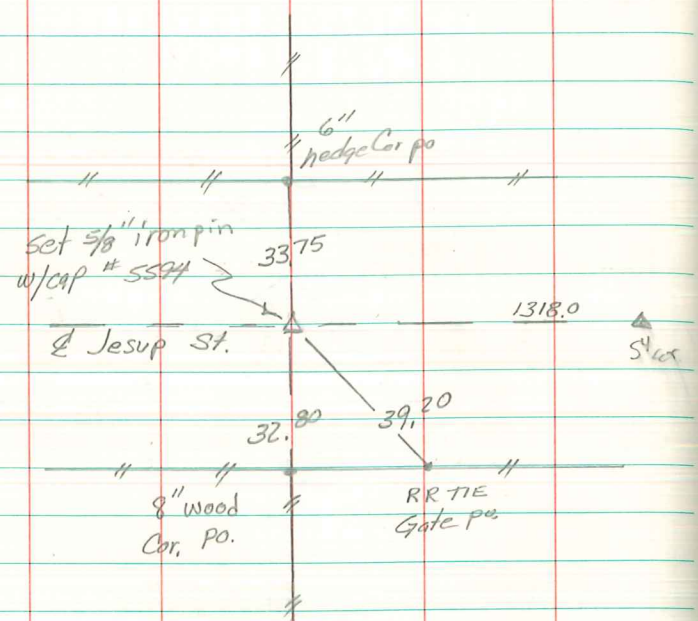 6"
hedge Cor po
Set 5/8" iron pin
w/cap # 5594
33.75
1318.0
℄ Jesup St.
S¼ cor
32.80
39.20
8" wood
Cor. Po.
RR TIE
Gate po.